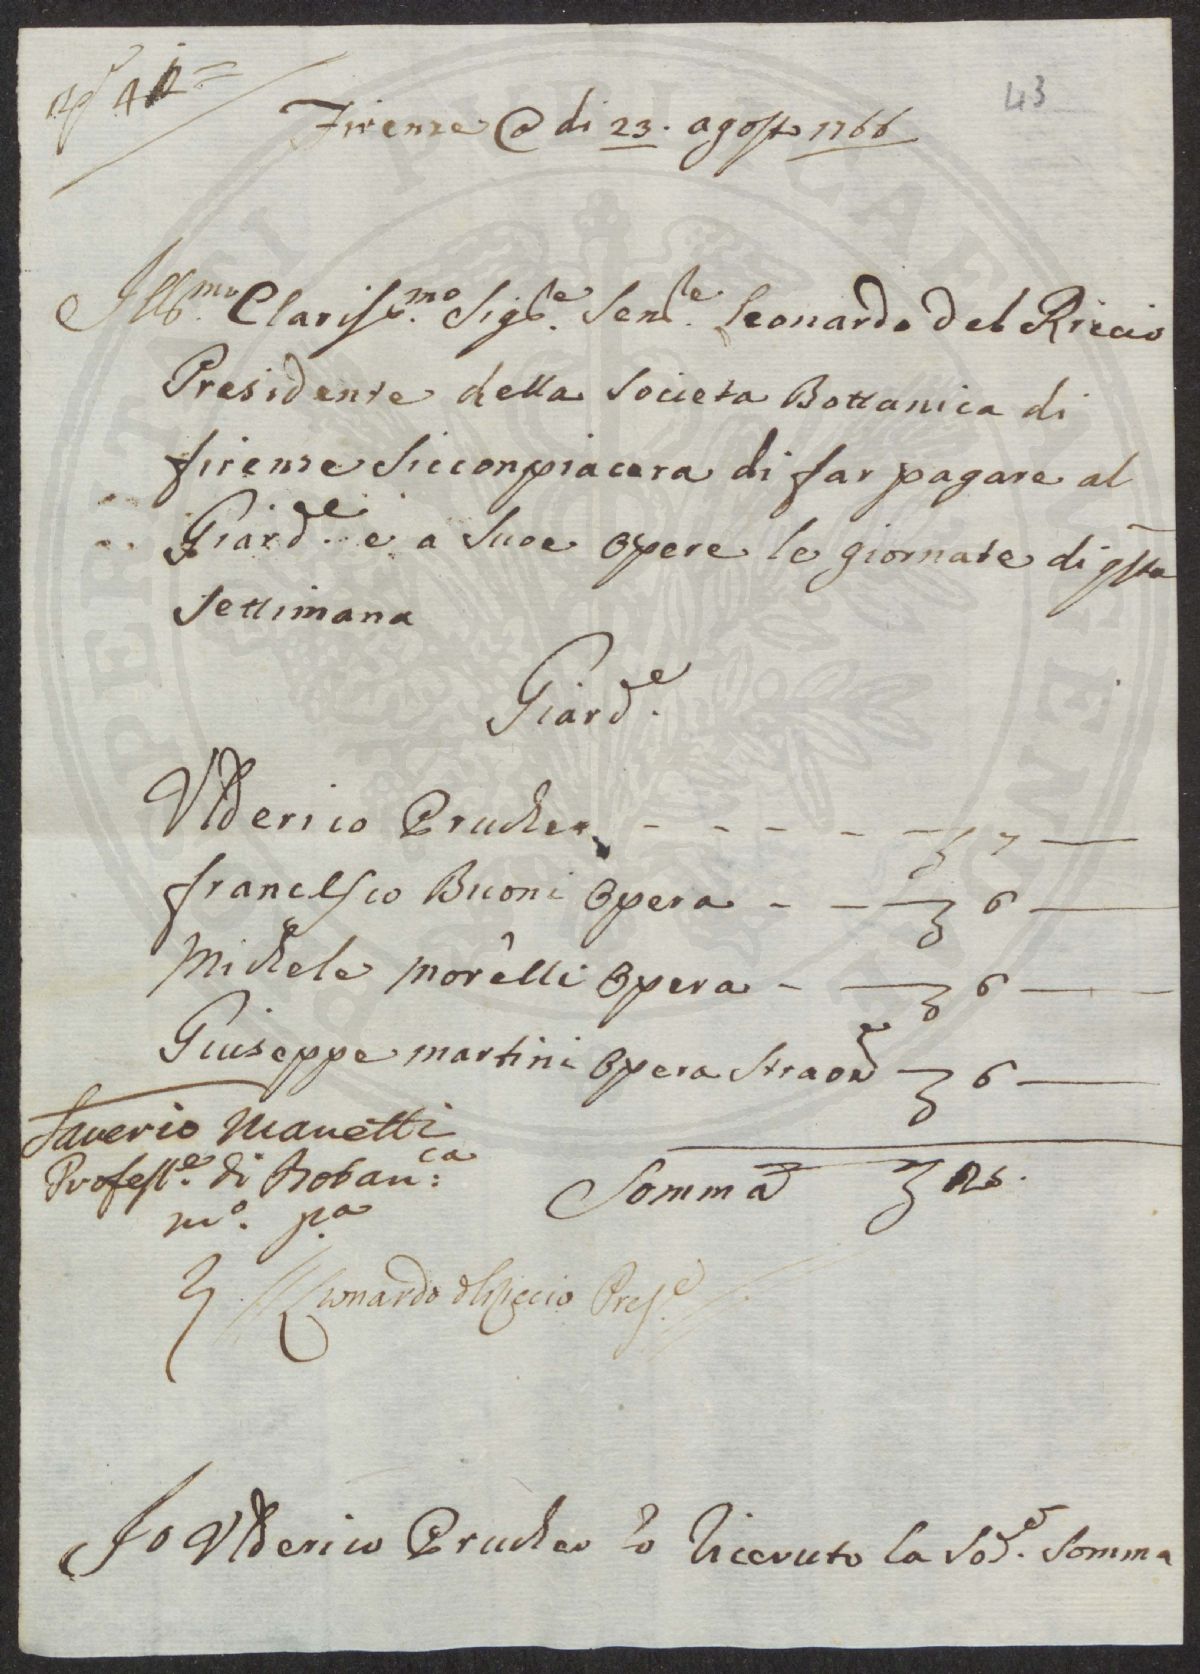 43
Firenze @ di 23. agosto 1766
Ill.mo Clariss.mo Sig.re Sen.re Leonardo del Riccio
Presidente della Societa Bottanica di
firenze Sicconpiacera di far pagare al
Giard.e e a Suoe opere le giornate di q.sta
Settimana
Giard.e
Ulderico Prucher - - - - - 7 —
francesco Buoni opera - - 6 —
Michele morelli opera - 6 —
Giuseppe martini opera Straord.e 6 —
Saverio Manetti
Profess.e di Botan.ca
m.o p.a
Somma 25.
Leonardo del Riccio Pres.e
Io Ulderico Prucher ho Riceuto la Sod.e Somma